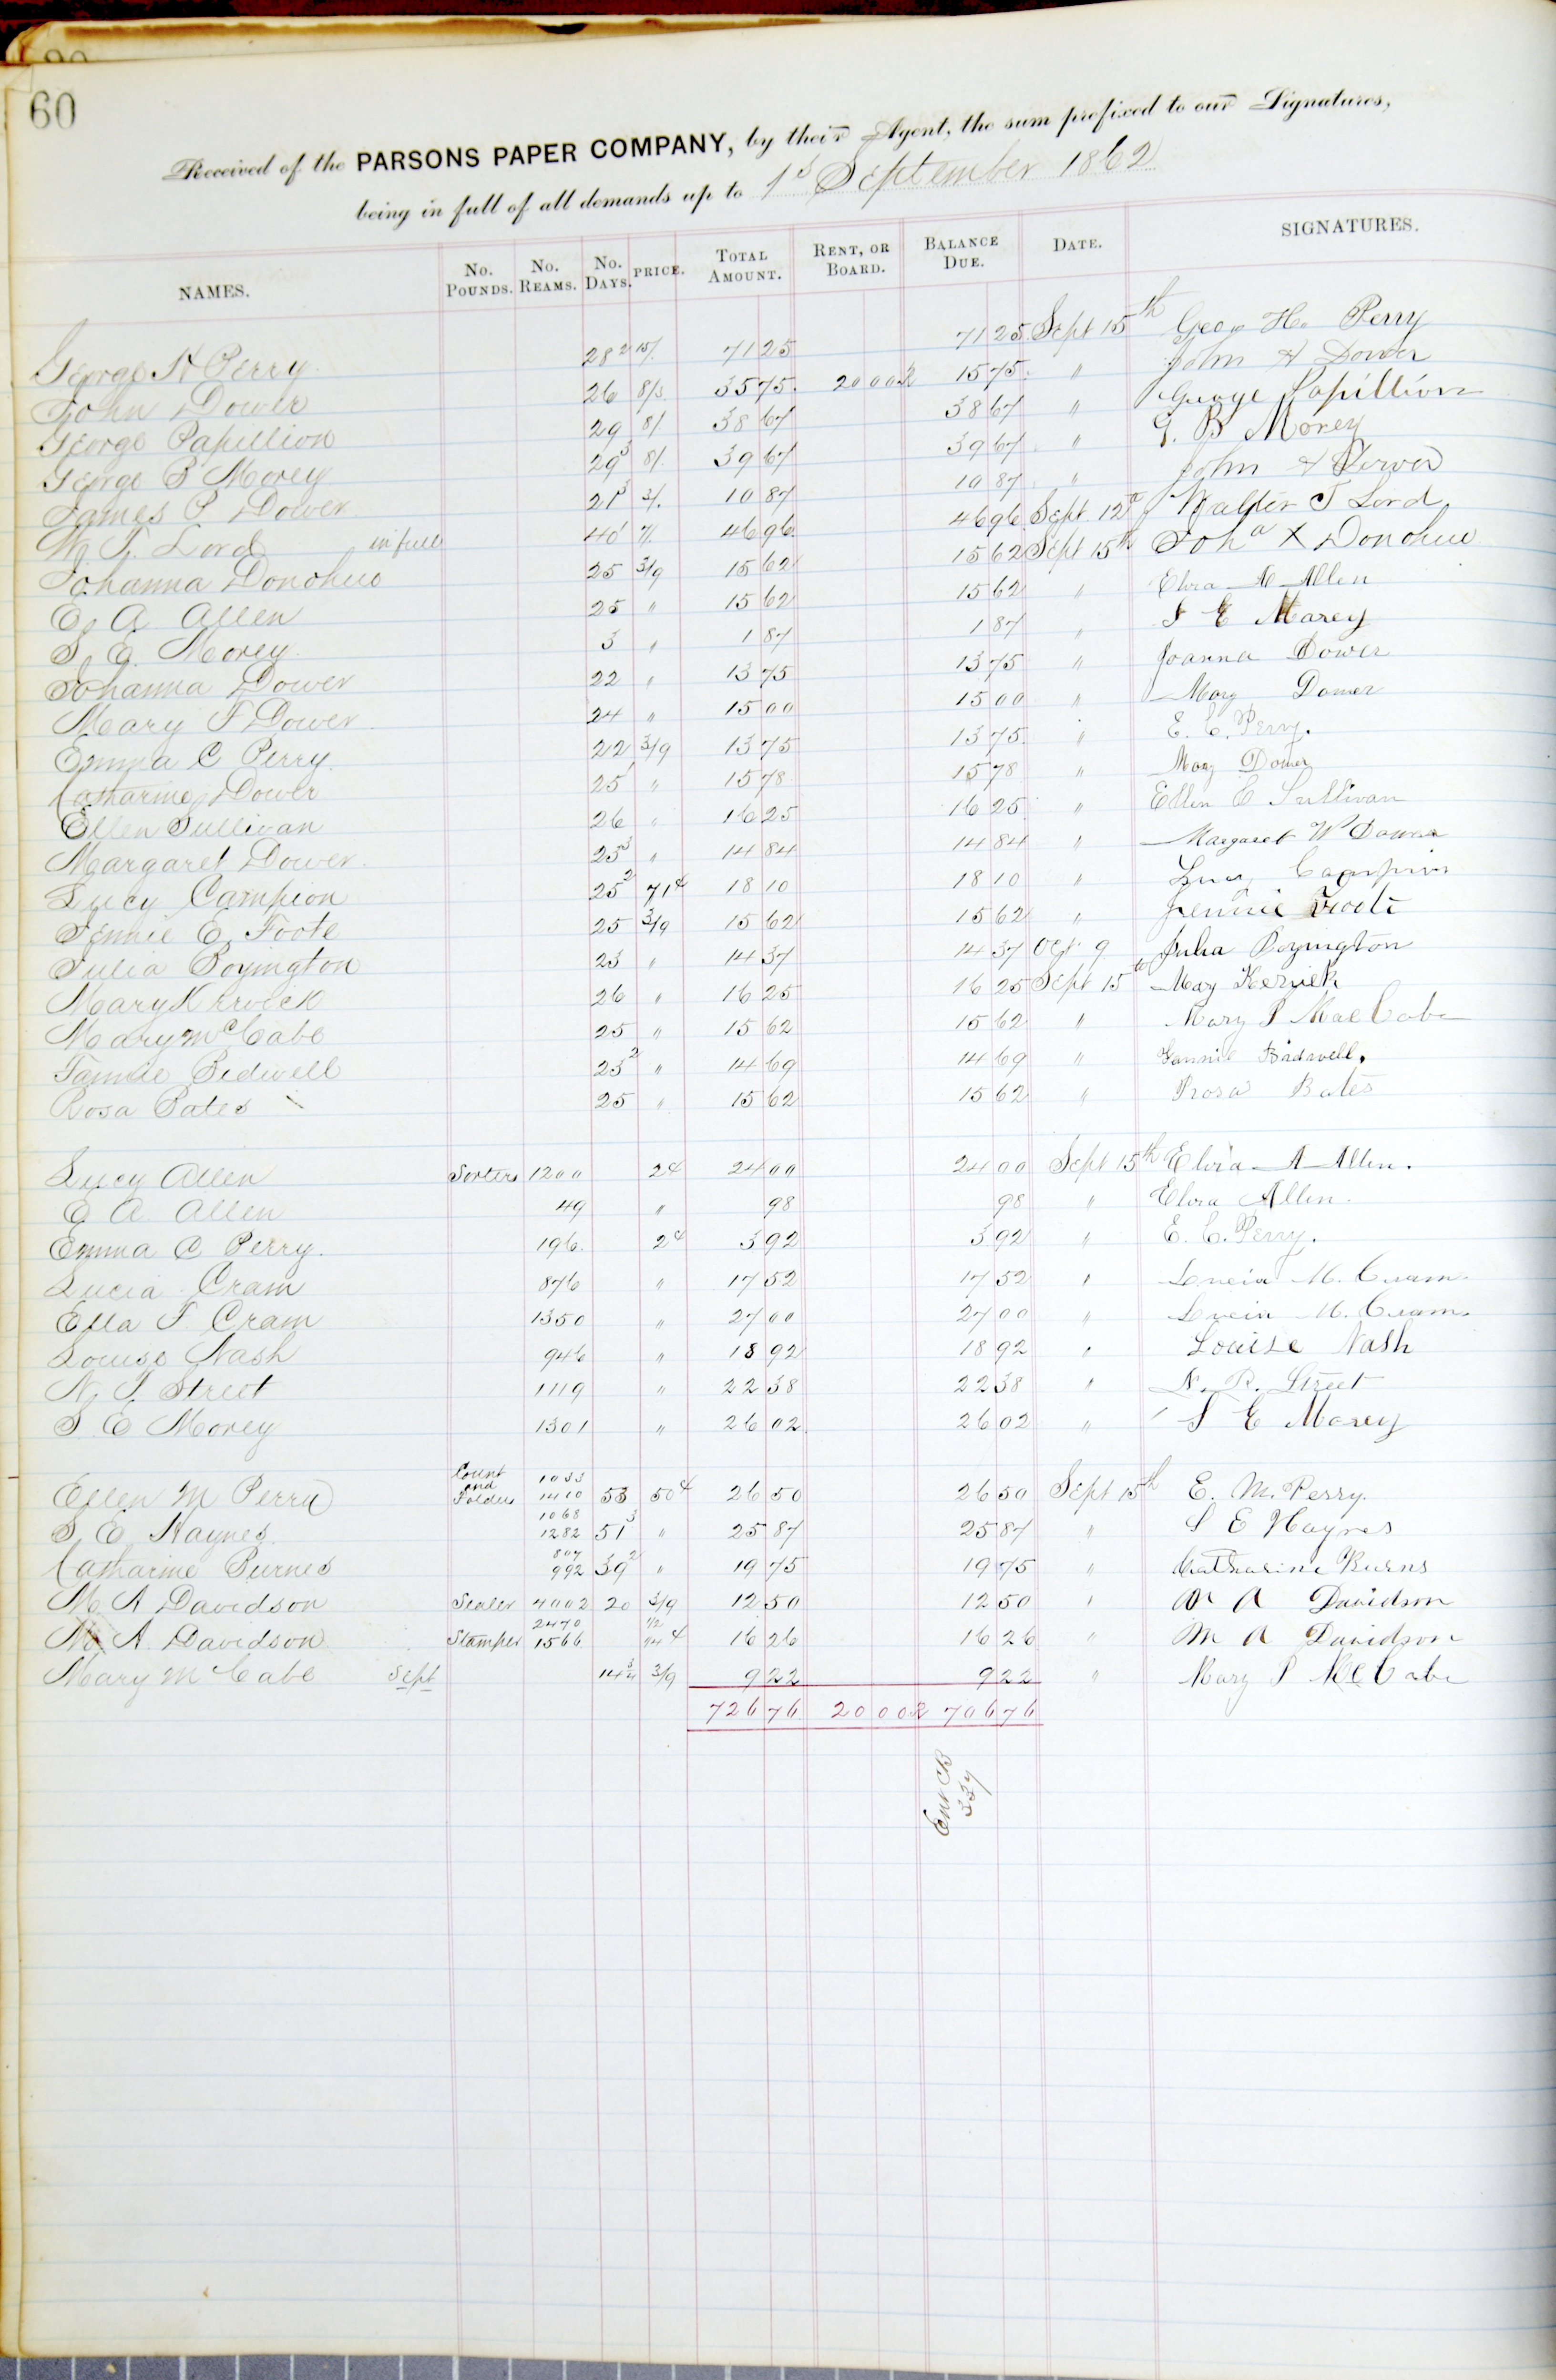 60
Received of the PARSONS PAPER COMPANY, by their Agent, the sum prefixed to our Signatures,
being in full of all demands up to 1st September 1862
NAMES. No. POUNDS. No. REAMS. No. DAYS. PRICE. TOTAL AMOUNT. RENT, OR BOARD. BALANCE DUE. DATE. SIGNATURES.
George H Perry 28 2 15/. 71 25 71 25 Sept 15th Geo H. Perry
John Dower 26 8/3 35 75 20 00 15 75 " John Dower
George Papillion 29 8/. 38 67 38 67 " George Papillion
George B Morey 29 3 8/. 39 67 39 67 " G. B Morey
James P Dower 21 3 3/. 10 87 10 87 " John Dower
W. T. Lord in full 40 1 7/. 46 96 46 96 Sept 12th Walter T Lord
Johanna Donohue 25 3/9 15 62 15 62 Sept 15th Joha X Donohue
E. A. Allen 25 " 15 62 15 62 " Elvia A Allen
S. E. Morey 3 " 1 87 1 87 " S E Morey
Johanna Dower 22 " 13 75 13 75 " Joanna Dower
Mary F Dower 24 " 15 00 15 00 " Mary Dower
Emma C Perry 22 3/9 13 75 13 75 " E. C. Perry.
Catharine Dower 25 1 " 15 78 15 78 " Mary Dower
Ellen Sullivan 26 " 16 25 16 25 " Ellen C Sullivan
Margaret Dower 23 3 " 14 84 14 84 " Margaret W Dower
Lucy Campion 25 2 71¢ 18 10 18 10 " Lucy Campion
Jennie E. Foote 25 3/9 15 62 15 62 " Jennie Foote
Julia Boyington 23 " 14 37 14 37 Oct 9 Julia Boyington
Mary Kerwick 26 " 16 25 16 25 Sept 15th Mary Kerwick
Mary McCabe 25 " 15 62 15 62 " Mary P MacCabe
Fannie Bidwell 23 2 " 14 69 14 69 " Fannie Bidwell.
Rosa Bates 25 " 15 62 15 62 " Rosa Bates
Lucy Allen Sorters 1200 2¢ 24 00 24 00 Sept 15th Elvia A Allen.
E A Allen 49 " 98 98 " Elvia Allen.
Emma C Perry. 196. 2¢ 3 92 3 92 " E. C. Perry.
Lucia Cram 876 " 17 52 17 52 " Lucia M. Cram
Ella F. Cram 1350 " 27 00 27 00 " Lucia M. Cram.
Louise Nash 946 " 18 92 18 92 " Louise Nash
N. T. Street 1119 " 22 38 22 38 " N. R. Street
S E Morey 1301 " 26 02 26 02 " S E Morey
Ellen M Perry Count and Folders 1033 1410 53 50¢ 26 50 26 50 Sept 15th E. M. Perry.
S. E. Haynes. 1068 1282 51 3 " 25 87 25 87 " S E Haynes
Catharine Burnes 807 992 39 2 " 19 75 19 75 " Catharine Burns
M A Davidson Sealer 4002 20 3/9 12 50 12 50 " M A Davidson
M A Davidson Stamper 2470 1566 1/2 3/4¢ 16 26 16 26 " M A Davidson
Mary McCabe Sept 14 3/4 3/9 9 22 9 22 " Mary P McCabe
726 76 20 00 706 76
Ent CB
337